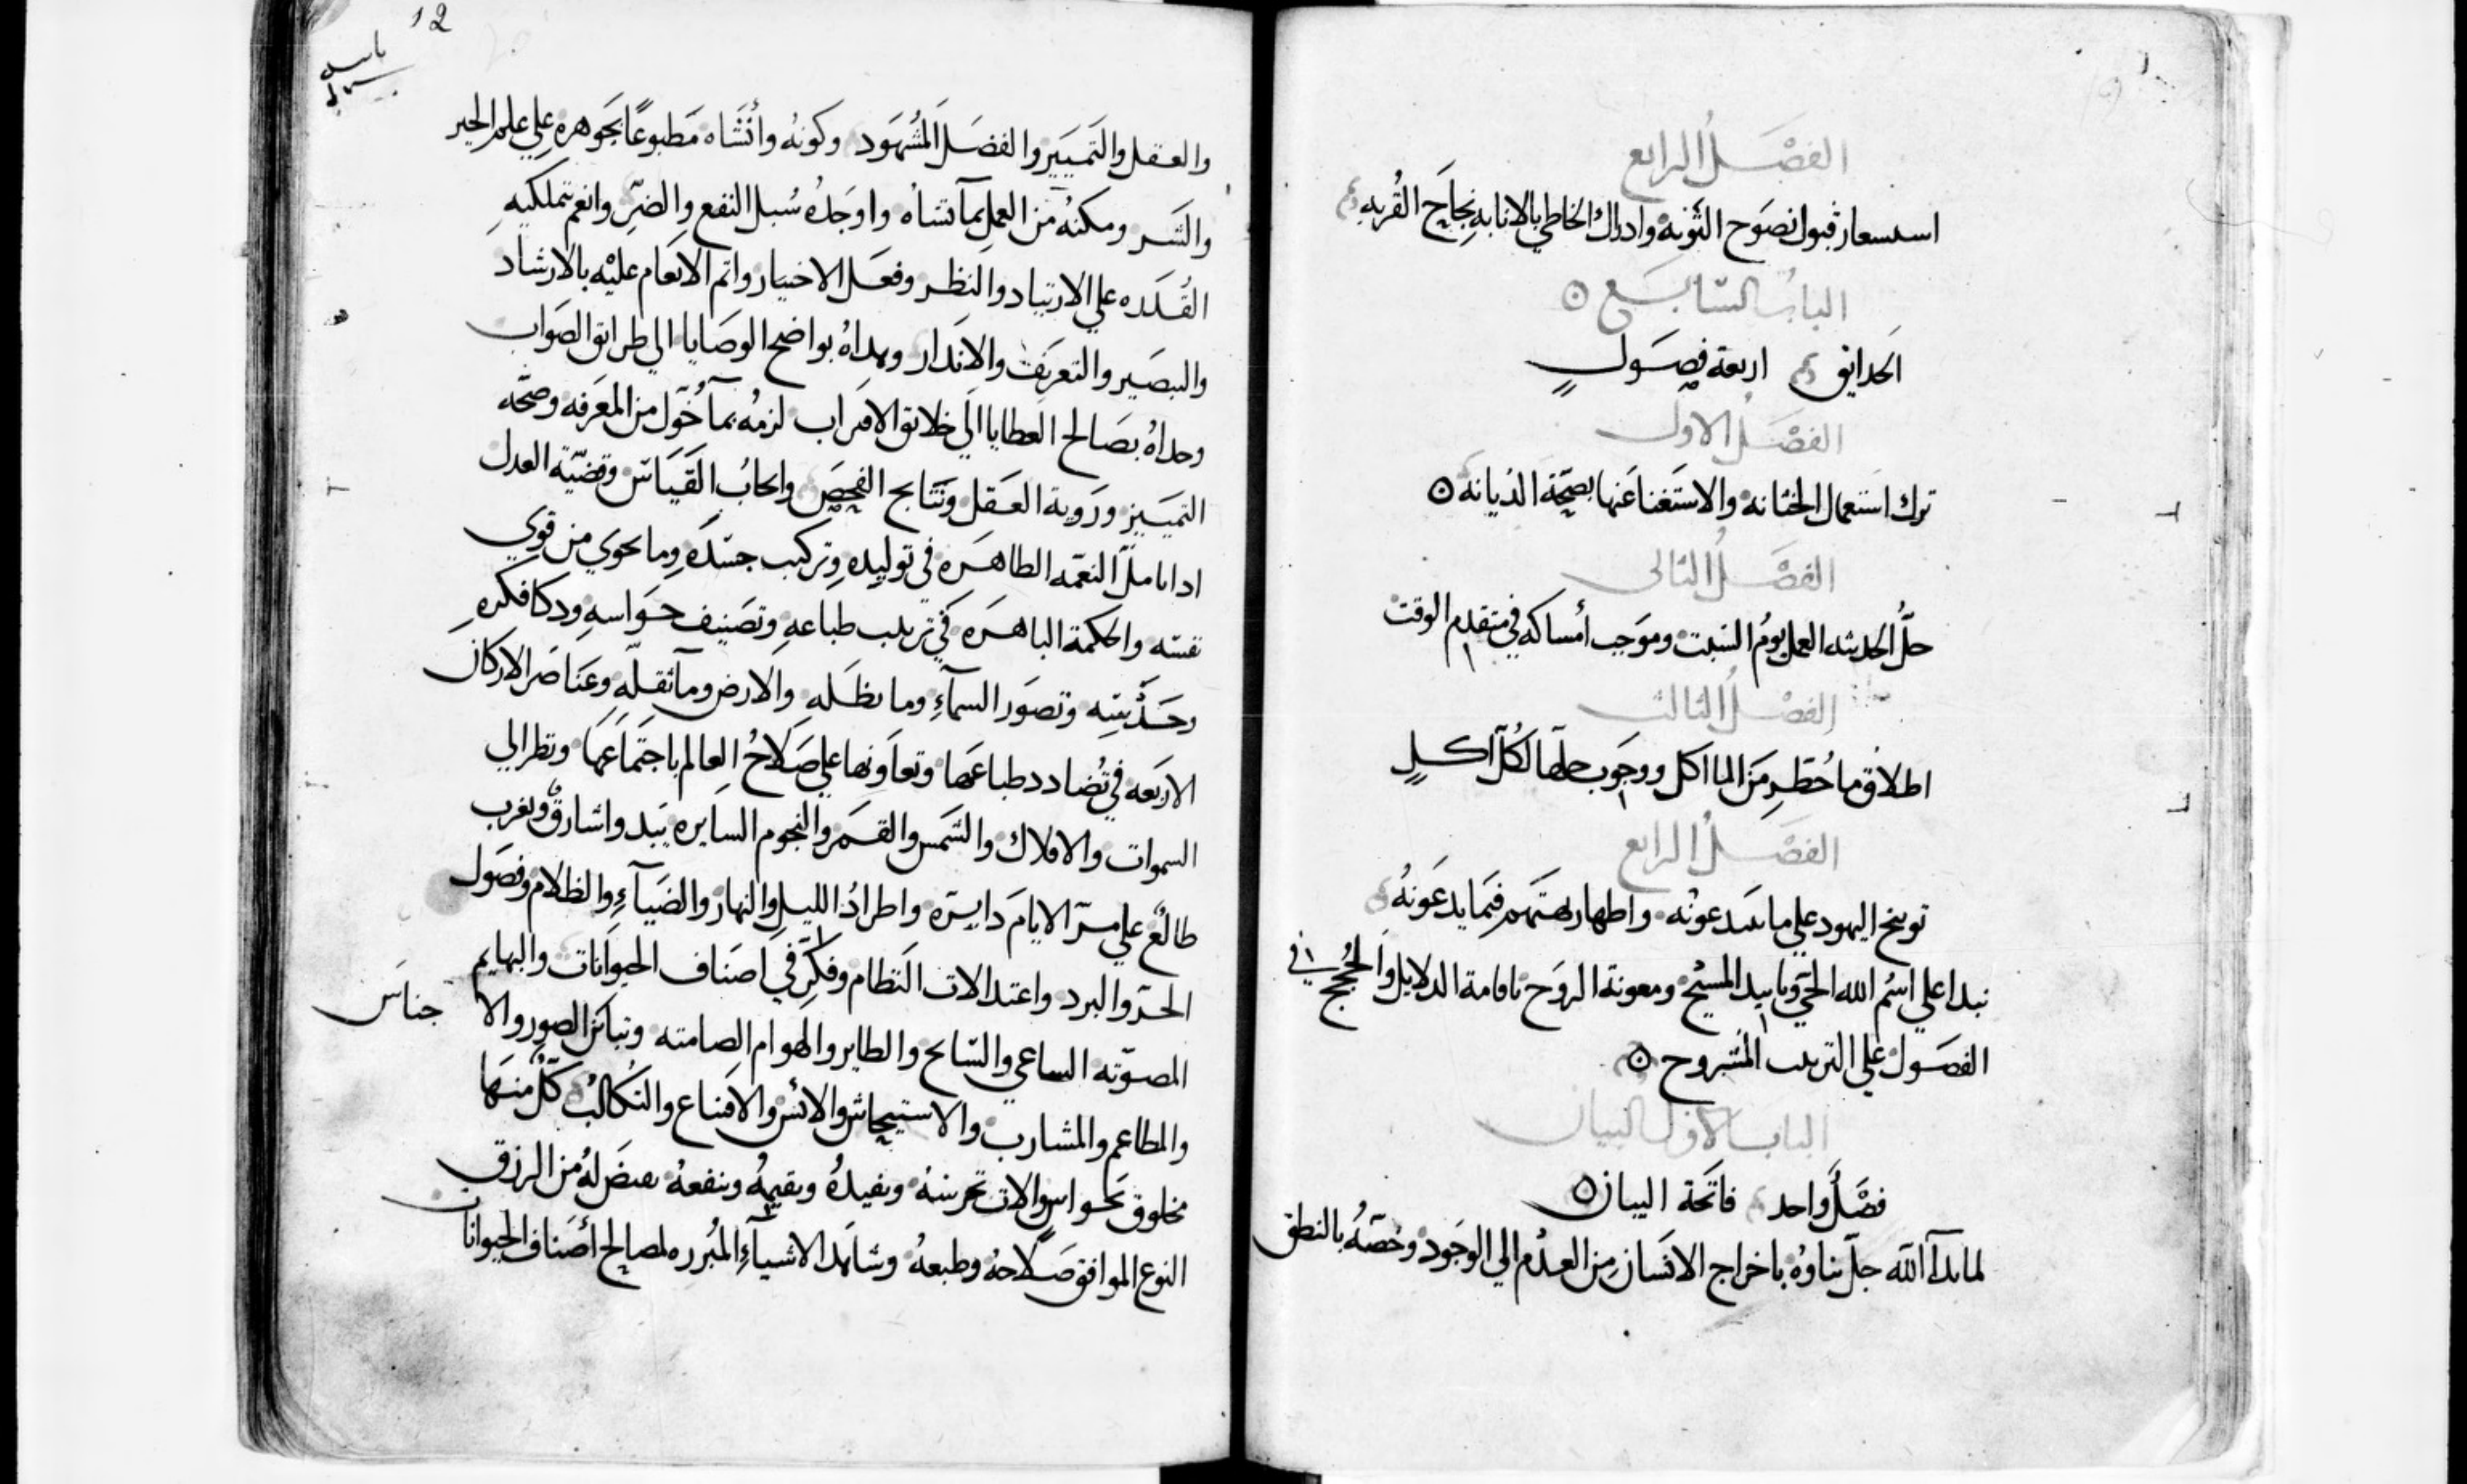 الفصل الرابع
استشعار قبول نصوح التوبة وادراك الخاطي بالانابه نجاح القربه
الباب السابع
الحدايق اربعة فصول
الفصل الاول
ترك استعمال الختانه والاستغنا عنها بصحة الديانه
الفصل الثاني
حل الحديثه العمل يوم السبت وموجب امساكه في متقدم الوقت
الفصل الثالث
اطلاق ما حظر من الماكل ووجوب حلها لكل اكل
الفصل الرابع
توبيخ اليهود على ما يبتدعونه واظهار بهتهم فيما يدعونه
نبدا على اسم الله الحي وتاييد المسيح ومعونة الروح باقامة الدلايل والحجج في
الفصول على الترتيب المشروح
الباب الاول البيان
فصل واحد فاتحة البيان
لما بدا الله جل ثناوه باخراج الانسان من العدم الي الوجود وخصه بالنطق
12
والعقل والتمييز والفضل المشهود وكونه وأنشاه مطبوعًا بجوهره علي علم الخير
والشر ومكنه من العمل بما تشاه واوجده سبل النفع والضر وانعم بتمليكه
القدره علي الارتياد والنظر وفعل الاختيار واتم الانعام عليه بالارشاد
والتبصير والتعريف والانذار وهداه بواضح الوصايا الي طرايق الصواب
وحداه بصالح العطايا الي خلايق الاقتراب لزمه بما خول من المعرفه وصحه
التمييز وروية العقل ونتايج الفحص وايجاب القياس وقضية العدل
اذا تامل النعمه الظاهره في توليده وتركيب جسده وما يحوي من قوي
نفسه والحكمة الباهره في ترتيب طباعه وتصنيف حواسه وذكا فكره
وحديثه وتصور السمآء وما تظله والارض وما تقله وعناصر الاركان
الاربعه في تضادد طباعها وتعاونها علي صلاح العالم باجتماعها ونظر الي
السموات والافلاك والشمس والقمر والنجوم السايره يبدو اشارق ويغرب
طالع علي مر الايام دايره واطراد الليل والنهار والضيآء والظلام وفصول
الحر والبرد واعتدالات النظام وفكر في اصناف الحيوانات والبهايم
المصوته الساعي والسابح والطاير والهوام الصامته وتباين الصور والا جناس
والمطاعم والمشارب والاستيحاش والانس والاقتناع والتكالب كل منها
مخلوق بحواس والات تحرسه وتفيده وتقيمه وتنفعه يقتض له من الرزق
النوع الموافق صلاحه وطبعه وشاهد الاشيآء المبرره لمصالح أصناف الحيوانات